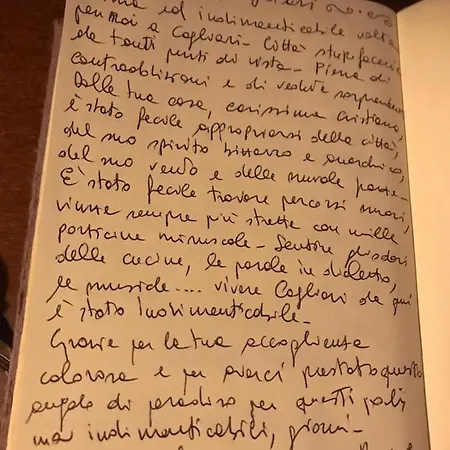 ed indimenticabile volta
per noi a Cagliari. Città stupefacente
da tanti punti di vista. Piena di
contraddizioni e di vedute sorprendenti
Dalla tua casa, carissima Cristiana,
è stato facile appropriarsi della città,
del suo spirito bizzarro e anarchico,
del suo vento e delle nuvole
È stato facile trovare percorsi nuovi,
viuzze sempre più strette con mille
porticine minuscole. Sentire gli odori
delle cucine, le parole in dialetto,
le musiche.... vivere Cagliari da qui
è stato indimenticabile.
Grazie per la tua accoglienza
calorosa e per averci prestato questo
angolo di paradiso per questi pochi
ma indimenticabili, giorni.